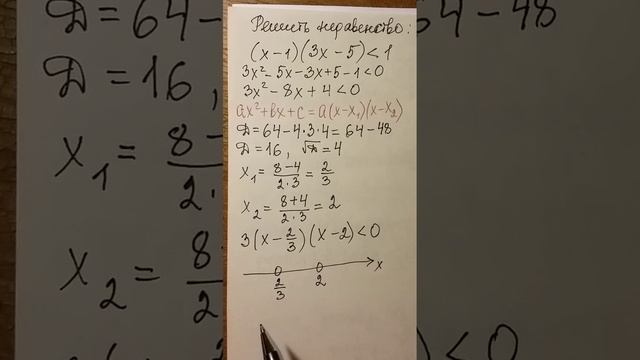 Решить неравенство:
(x-1)(3x-5)<1
3x²-5x-3x+5-1<0
3x²-8x+4<0
ax²+bx+c=a(x-x₁)(x-x₂)
D=64-4·3·4=64-48
D=16, √D=4
x₁=\frac{8-4}{2·3}=\frac{2}{3}
x₂=\frac{8+4}{2·3}=2
3(x-\frac{2}{3})(x-2)<0
x
\frac{2}{3} 2